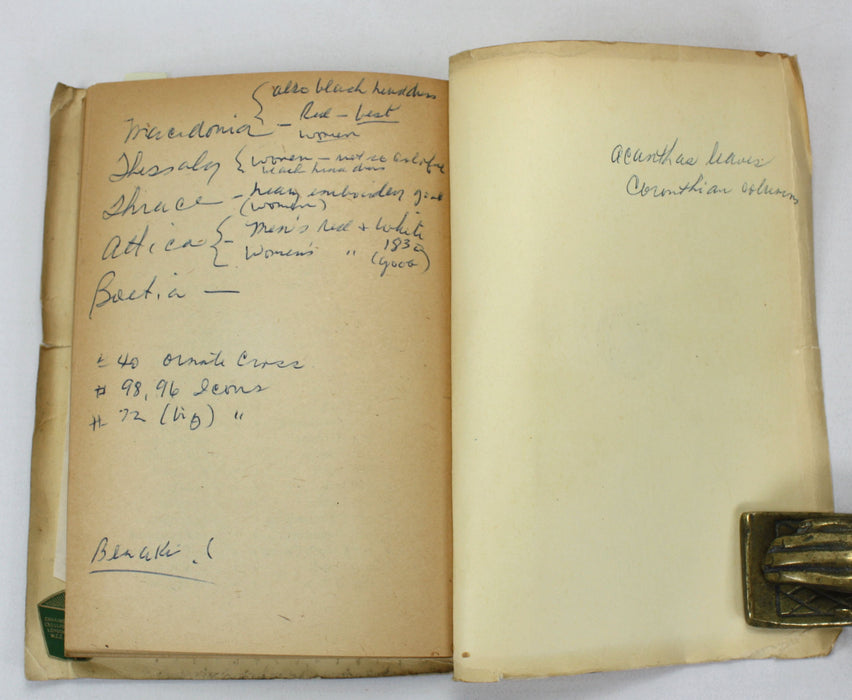 also black headdress
Macedonia — Red — best
women
Thessaly { women — not so colorful
black headdress
Thrace — heavy embroidery
(women)
Attica { — Men's Red + White
Women's " 1830
(good)
Boetia —
# 40 ornate Cross
# 98, 96 Icons
# 72 (big) "
Benaki
acanthas leaves
Coronthian columns